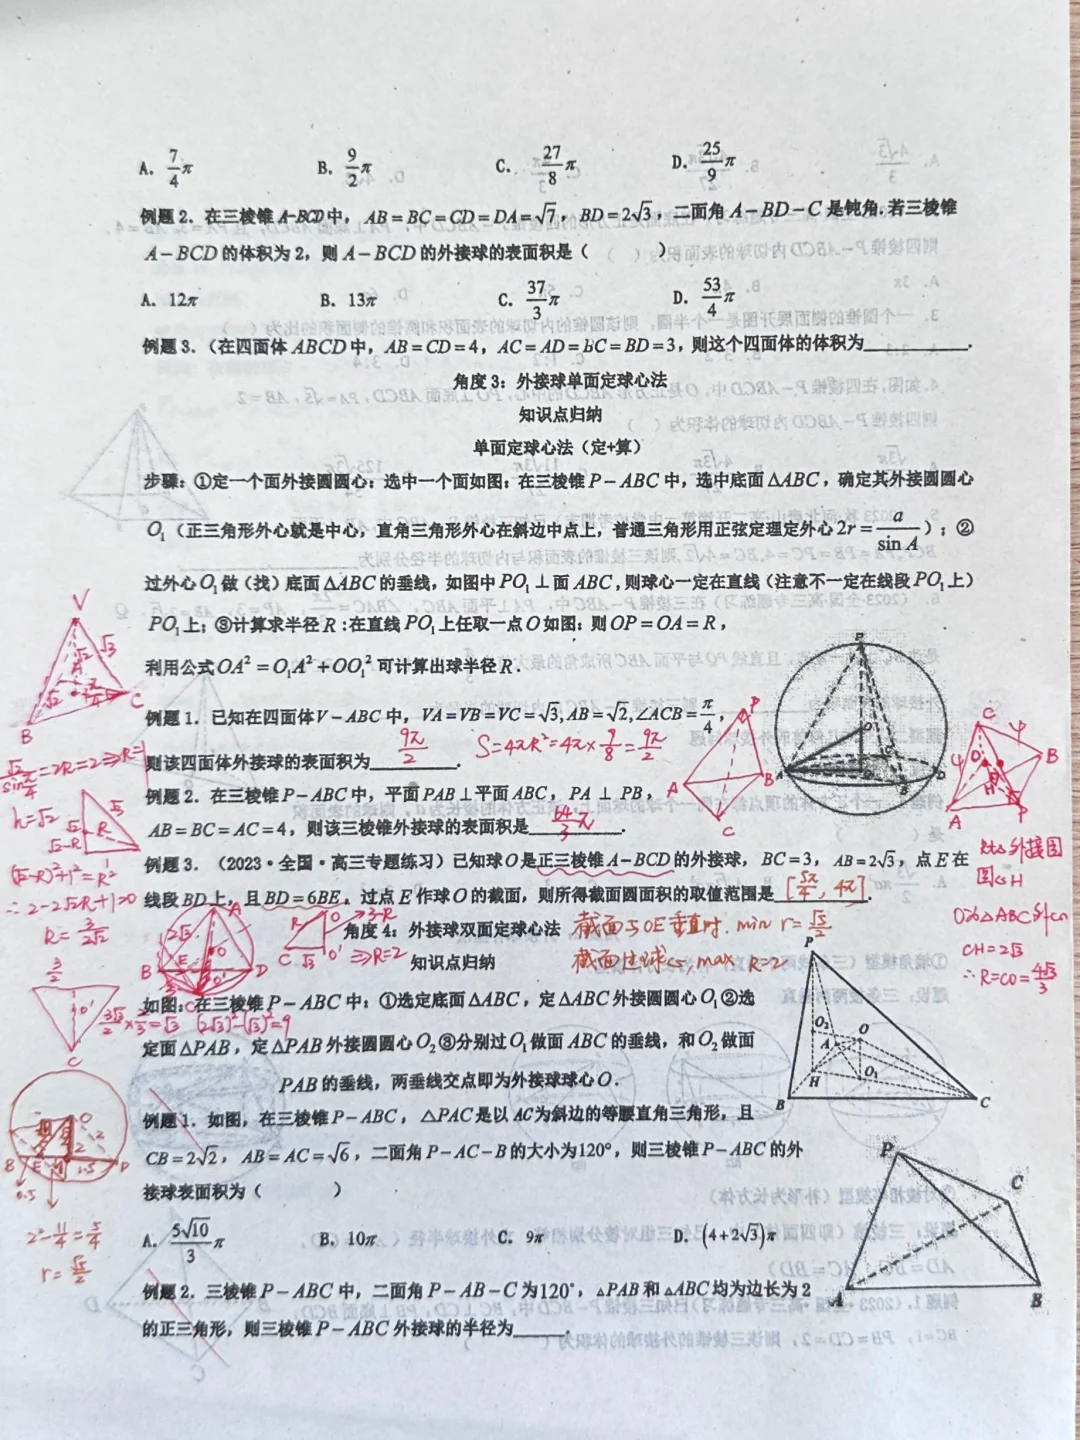 A. 7/4 π B. 9/2 π C. 27/8 π D. 25/9 π
例题2. 在三棱锥A-BCD中, AB=BC=CD=DA=√7, BD=2√3, 二面角A-BD-C是钝角.若三棱锥
A-BCD的体积为2, 则A-BCD的外接球的表面积是( )
A. 12π B. 13π C. 37/3 π D. 53/4 π
例题3.(在四面体ABCD中, AB=CD=4, AC=AD=BC=BD=3, 则这个四面体的体积为________.
角度3: 外接球单面定球心法
知识点归纳
单面定球心法(定+算)
步骤: ①定一个面外接圆圆心: 选中一个面如图: 在三棱锥P-ABC中, 选中底面△ABC, 确定其外接圆圆心
O₁(正三角形外心就是中心, 直角三角形外心在斜边中点上, 普通三角形用正弦定理定外心2r=a/sin A); ②
过外心O₁做(找)底面△ABC的垂线, 如图中PO₁⊥面ABC, 则球心一定在直线(注意不一定在线段PO₁上)
PO₁上; ③计算求半径R:在直线PO₁上任取一点O如图: 则OP=OA=R,
利用公式OA²=O₁A²+OO₁²可计算出球半径R.
例题1. 已知在四面体V-ABC中, VA=VB=VC=√3, AB=√2, ∠ACB=π/4,
则该四面体外接球的表面积为 9π/2 . S=4πR²=4π×9/8=9π/2
例题2. 在三棱锥P-ABC中, 平面PAB⊥平面ABC, PA⊥PB,
AB=BC=AC=4, 则该三棱锥外接球的表面积是 64/3 π .
例题3. (2023·全国·高三专题练习)已知球O是正三棱锥A-BCD的外接球, BC=3, AB=2√3, 点E在
线段BD上, 且BD=6BE. 过点E作球O的截面, 则所得截面圆面积的取值范围是 [5π/4, 4π] .
角度4: 外接球双面定球心法
截面与OE垂直时. min r=√5/2
知识点归纳
截面过球心, max R=2
如图: 在三棱锥P-ABC中: ①选定底面△ABC, 定△ABC外接圆圆心O₁②选
定面△PAB, 定△PAB外接圆圆心O₂③分别过O₁做面ABC的垂线, 和O₂做面
PAB的垂线, 两垂线交点即为外接球球心O.
例题1. 如图, 在三棱锥P-ABC, △PAC是以AC为斜边的等腰直角三角形, 且
CB=2√2, AB=AC=√6, 二面角P-AC-B的大小为120°, 则三棱锥P-ABC的外
接球表面积为( )
A. 5√10/3 π B. 10π C. 9π D. (4+2√3)π
例题2. 三棱锥P-ABC中, 二面角P-AB-C为120°, △PAB和△ABC均为边长为2
的正三角形, 则三棱锥P-ABC外接球的半径为______.
V
√3
√2
B
C
√2/sin π/4=2R=2⇒R=1
h=√2
√3
√2-R
R
1
(√2-R)²+1²=R²
∴2-2√2R+1=0
R=3/2√2
A
2√3
B
D
E
C
R
3-R
O
O'
√3
⇒R=2
3√3/2×2/3=√3
(2√3)²-(√3)²=9
B
E
D
O
2
0.5
1.5
2²-11/4=5/4
r=√5/2
P
A
B
C
C
4
4
B
O
H
A
P
Rt△外接圆
圆心H
O为△ABC外心
CH=2√3
∴R=CO=4√3/3
P
A
B
D
O
P
O₂
A
O
H
O₁
B
C
P
C
A
B